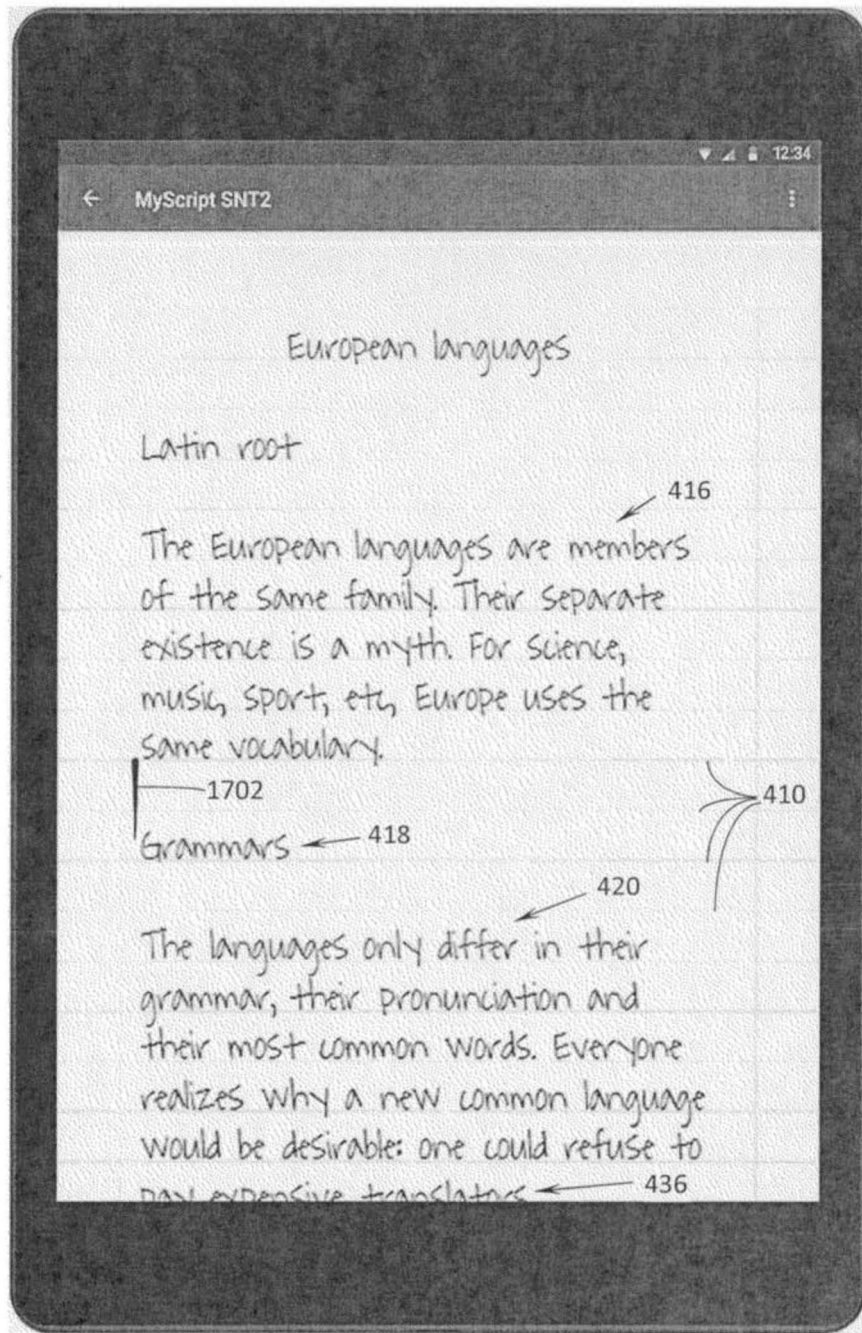 12:34
← MyScript SNT2
European languages
Latin root
416
The European languages are members
of the same family. Their separate
existence is a myth. For science,
music, sport, etc, Europe uses the
same vocabulary.
1702
410
Grammars
418
420
The languages only differ in their
grammar, their pronunciation and
their most common words. Everyone
realizes why a new common language
would be desirable: one could refuse to
pay expensive translators
436